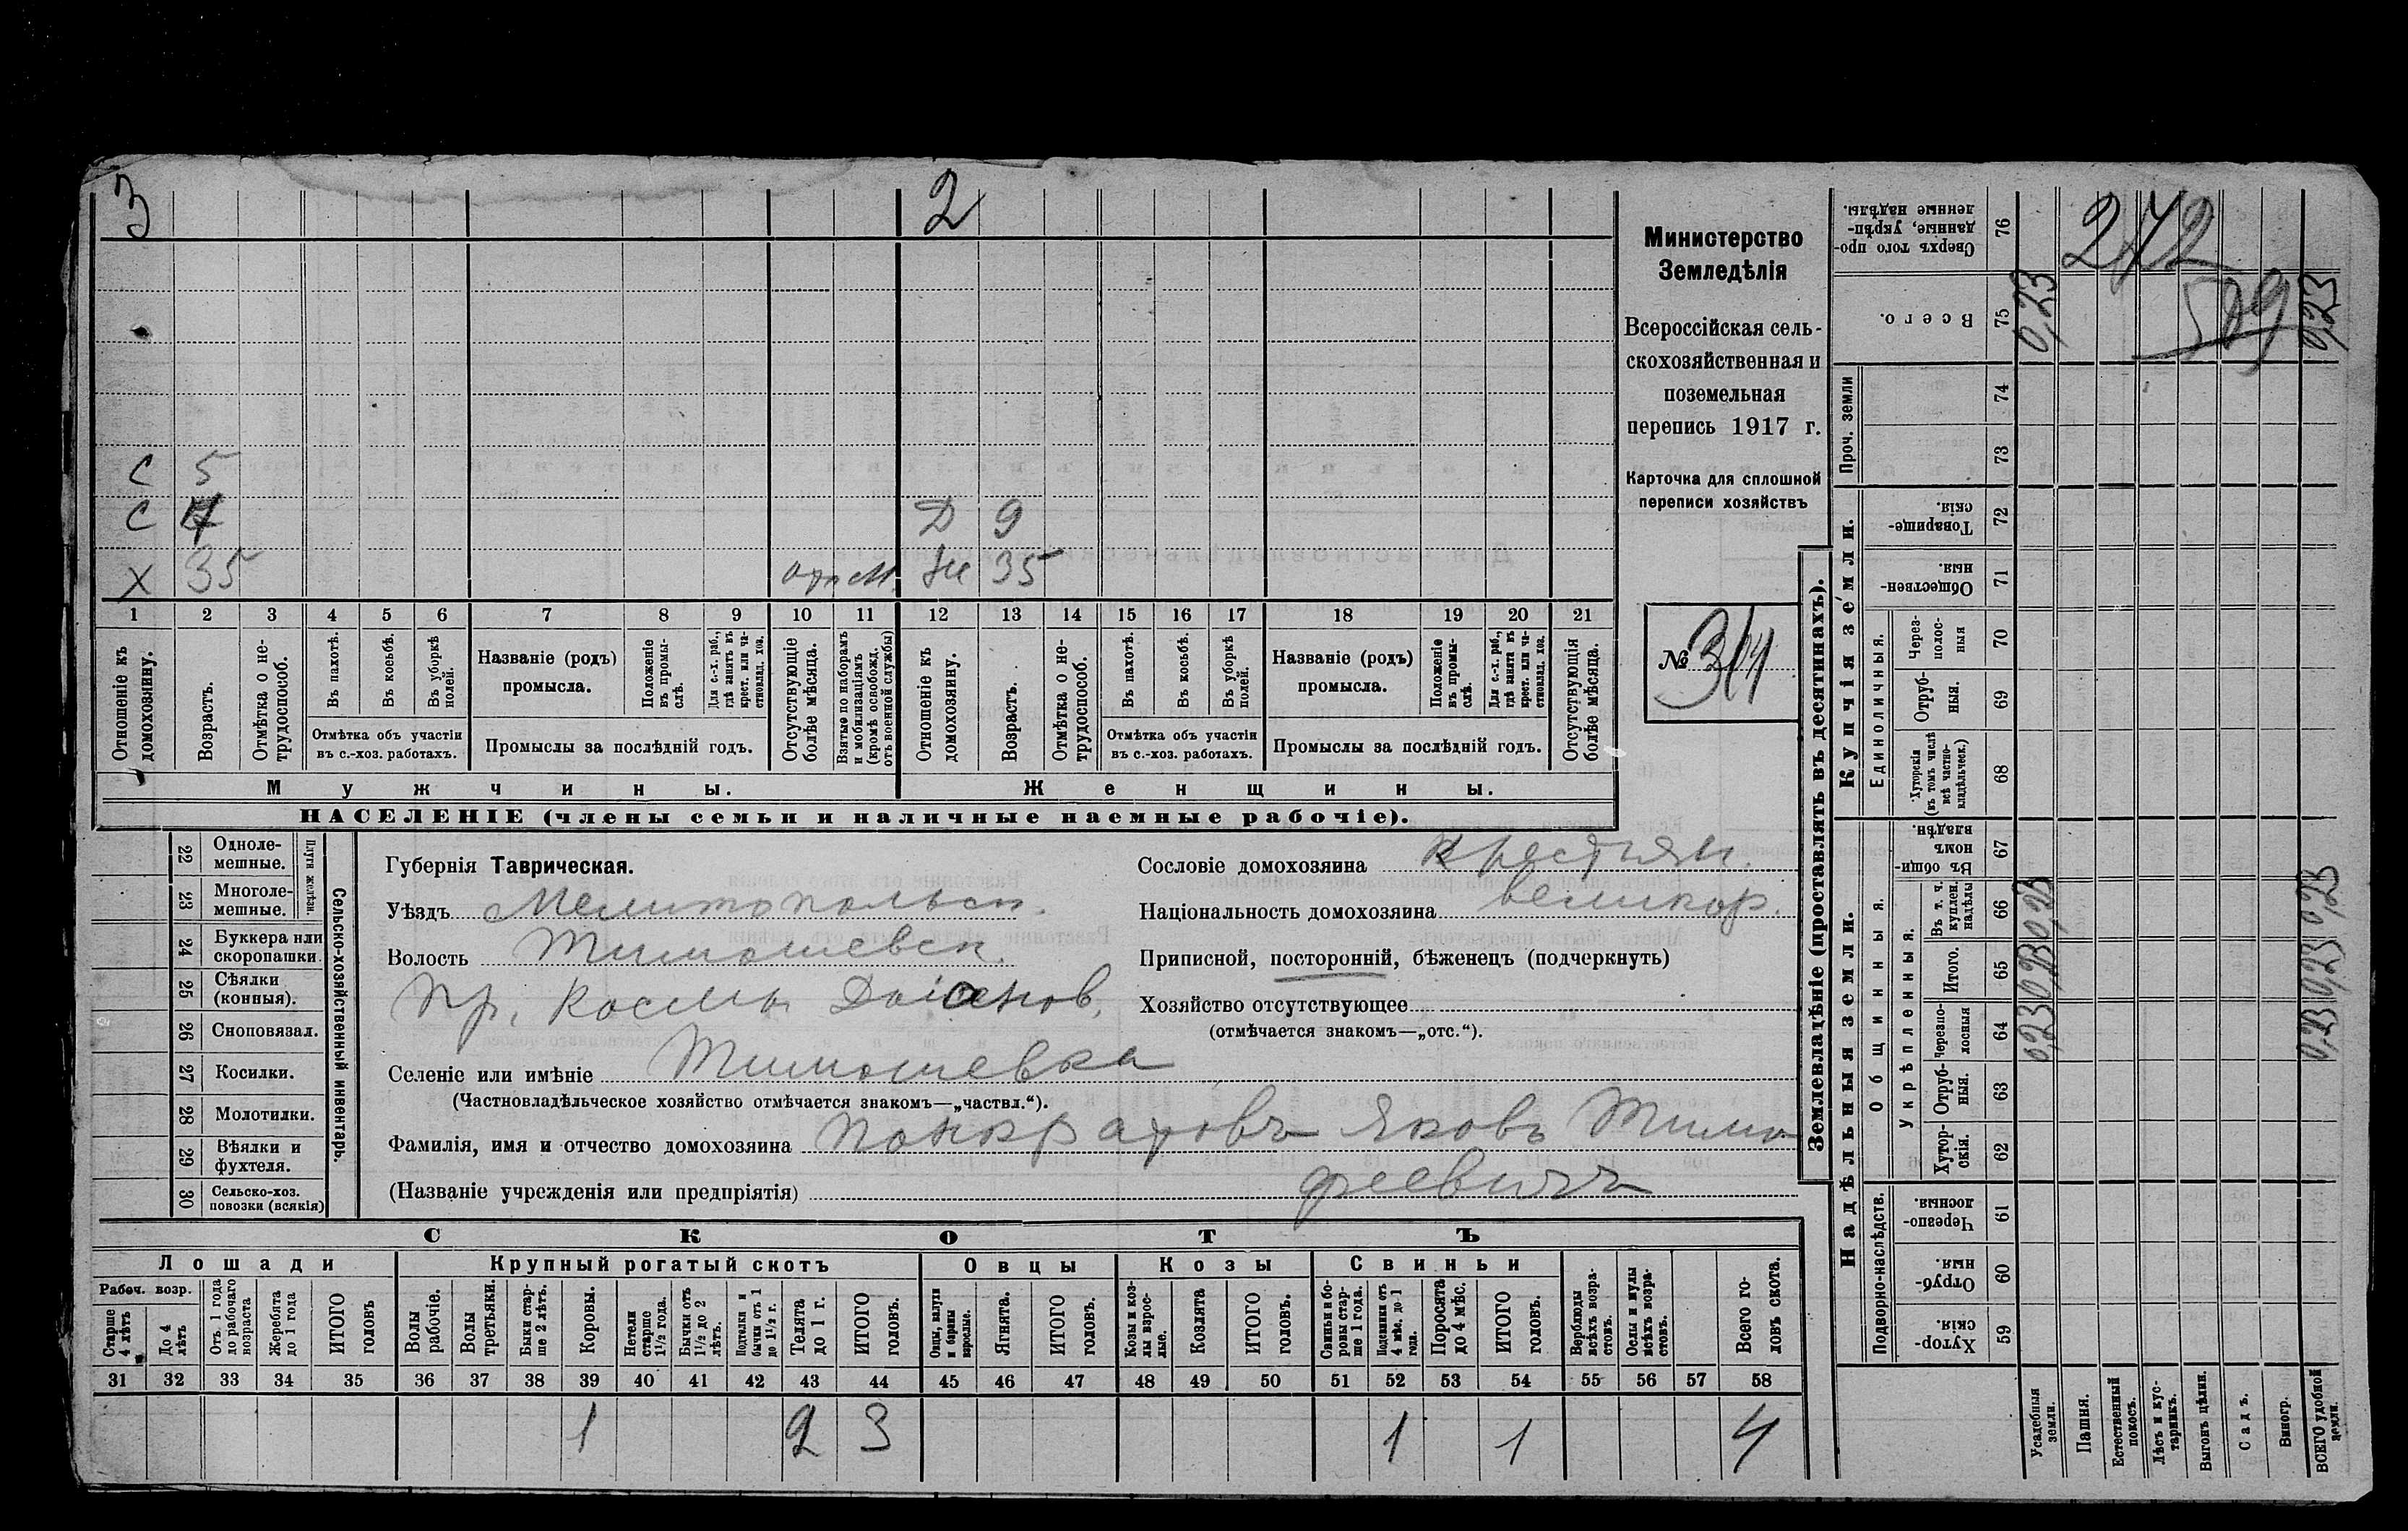 3 2
С 5
С 4 Д 9
Х 35 арм. Ж 35
1 2 3 4 5 6 7 8 9 10 11 12 13 14 15 16 17 18 19 20 21
Отношеніе къ домохозяину.
Возрастъ.
Отмѣтка о не-трудоспособ.
Въ пахотѣ.
Въ косьбѣ.
Въ уборкѣ полей.
Отмѣтка объ участіи въ с.-хоз. работахъ.
Названіе (родъ) промысла.
Положеніе въ промы-слѣ.
Для с.-х. раб., гдѣ занятъ въ крест. или ча-стновлад. хоз.
Промыслы за послѣдній годъ.
Отсутствующіе болѣе мѣсяца.
Взятые по наборамъ и мобилизаціямъ (кромѣ освобожд. отъ военной службы)
Отношеніе къ домохозяину.
Возрастъ.
Отмѣтка о не-трудоспособ.
Въ пахотѣ.
Въ косьбѣ.
Въ уборкѣ полей.
Отмѣтка объ участіи въ с.-хоз. работахъ.
Названіе (родъ) промысла.
Положеніе въ промы-слѣ.
Для с.-х. раб., гдѣ занята въ крест. или ча-стновлад. хоз.
Промыслы за послѣдній годъ.
Отсутствующія болѣе мѣсяца.
Мужчины. Женщины.
НАСЕЛЕНІЕ (члены семьи и наличные наемные рабочіе).
Министерство
Земледѣлія
Всероссійская сель-
скохозяйственная и
поземельная
перепись 1917 г.
Карточка для сплошной
переписи хозяйствъ
№ 314
22 Одноле-мешные.
23 Многоле-мешные.
Плуги желѣзн.
24 Буккера или скоропашки.
25 Сѣялки (конныя).
26 Сноповязал.
27 Косилки.
28 Молотилки.
29 Вѣялки и фухтеля.
30 Сельско-хоз. повозки (всякія)
Сельско-хозяйственный инвентарь.
Губернія Таврическая.
Уѣздъ Мелитопольск.
Волость Тимошевск.
Пр. Космы Даианов.
Селеніе или имѣніе Тимошевка
(Частновладѣльческое хозяйство отмѣчается знакомъ—„частвл.“).
Фамилія, имя и отчество домохозяина Понкратовъ Яковъ Тимо
(Названіе учрежденія или предпріятія) феевичъ
Сословіе домохозяина Крестьян.
Національность домохозяина великор.
Приписной, посторонній, бѣженецъ (подчеркнуть)
Хозяйство отсутствующее
(отмѣчается знакомъ—„отс.“).
СКОТЪ
Лошади Крупный рогатый скотъ Овцы Козы Свиньи
Рабоч. возр.
Старше 4 лѣтъ
До 4 лѣтъ
Отъ 1 года до рабочаго возраста
Жеребята до 1 года
ИТОГО головъ
Волы рабочіе.
Волы третьяки.
Быки стар-ше 2 лѣтъ.
Коровы.
Нетели старше 1½ года.
Бычки отъ 1½ до 2 лѣтъ.
Подтелки и бычки отъ 1 до 1½ г.
Телята до 1 г.
ИТОГО головъ.
Овцы, валухи и бараны взрослые.
Ягнята.
ИТОГО головъ.
Козы и коз-лы взрос-лые.
Козлята
ИТОГО головъ.
Свиньи и бо-ровы стар-ше 1 года.
Подсвинки отъ 4 мѣс. до 1 года.
Поросята до 4 мѣс.
ИТОГО головъ.
Верблюды всѣхъ возра-стовъ.
Ослы и мулы всѣхъ возра-стовъ.
Всего го-ловъ скота.
31 32 33 34 35 36 37 38 39 40 41 42 43 44 45 46 47 48 49 50 51 52 53 54 55 56 57 58
1 2 3 1 1 4
Землевладѣніе (проставлять въ десятинахъ).
Надѣльныя земли. Купчія земли. Проч. земли
Подворно-наслѣдств. Общинныя. Укрѣпленныя. Единоличныя.
Хутор-скія. 59
Отруб-ныя. 60
Черезпо-лосныя 61
Хутор-скія. 62
Отруб-ныя. 63
Черезпо-лосныя 64
Итого. 65
Въ т. ч. куплен. надѣлы 66
Въ общи-номъ владѣн. 67
Хуторскія (въ томъ числѣ всѣ частно-владѣльческ.) 68
Отруб-ныя. 69
Через-полос-ныя 70
Обществен-ныя. 71
Товарище-скія. 72
73
74
Всего. 75
Сверхъ того про-данные, укрѣп-ленные надѣлы. 76
Усадебныя земли. 0,23 0,23 0,23 0,23
Пашня.
Естественный покосъ.
Лѣсъ и кус-тарникъ.
Выгонъ цѣлин.
Садъ.
Виногр.
ВСЕГО удобной земли. 0,23 0,23 0,23 0,23
242
509